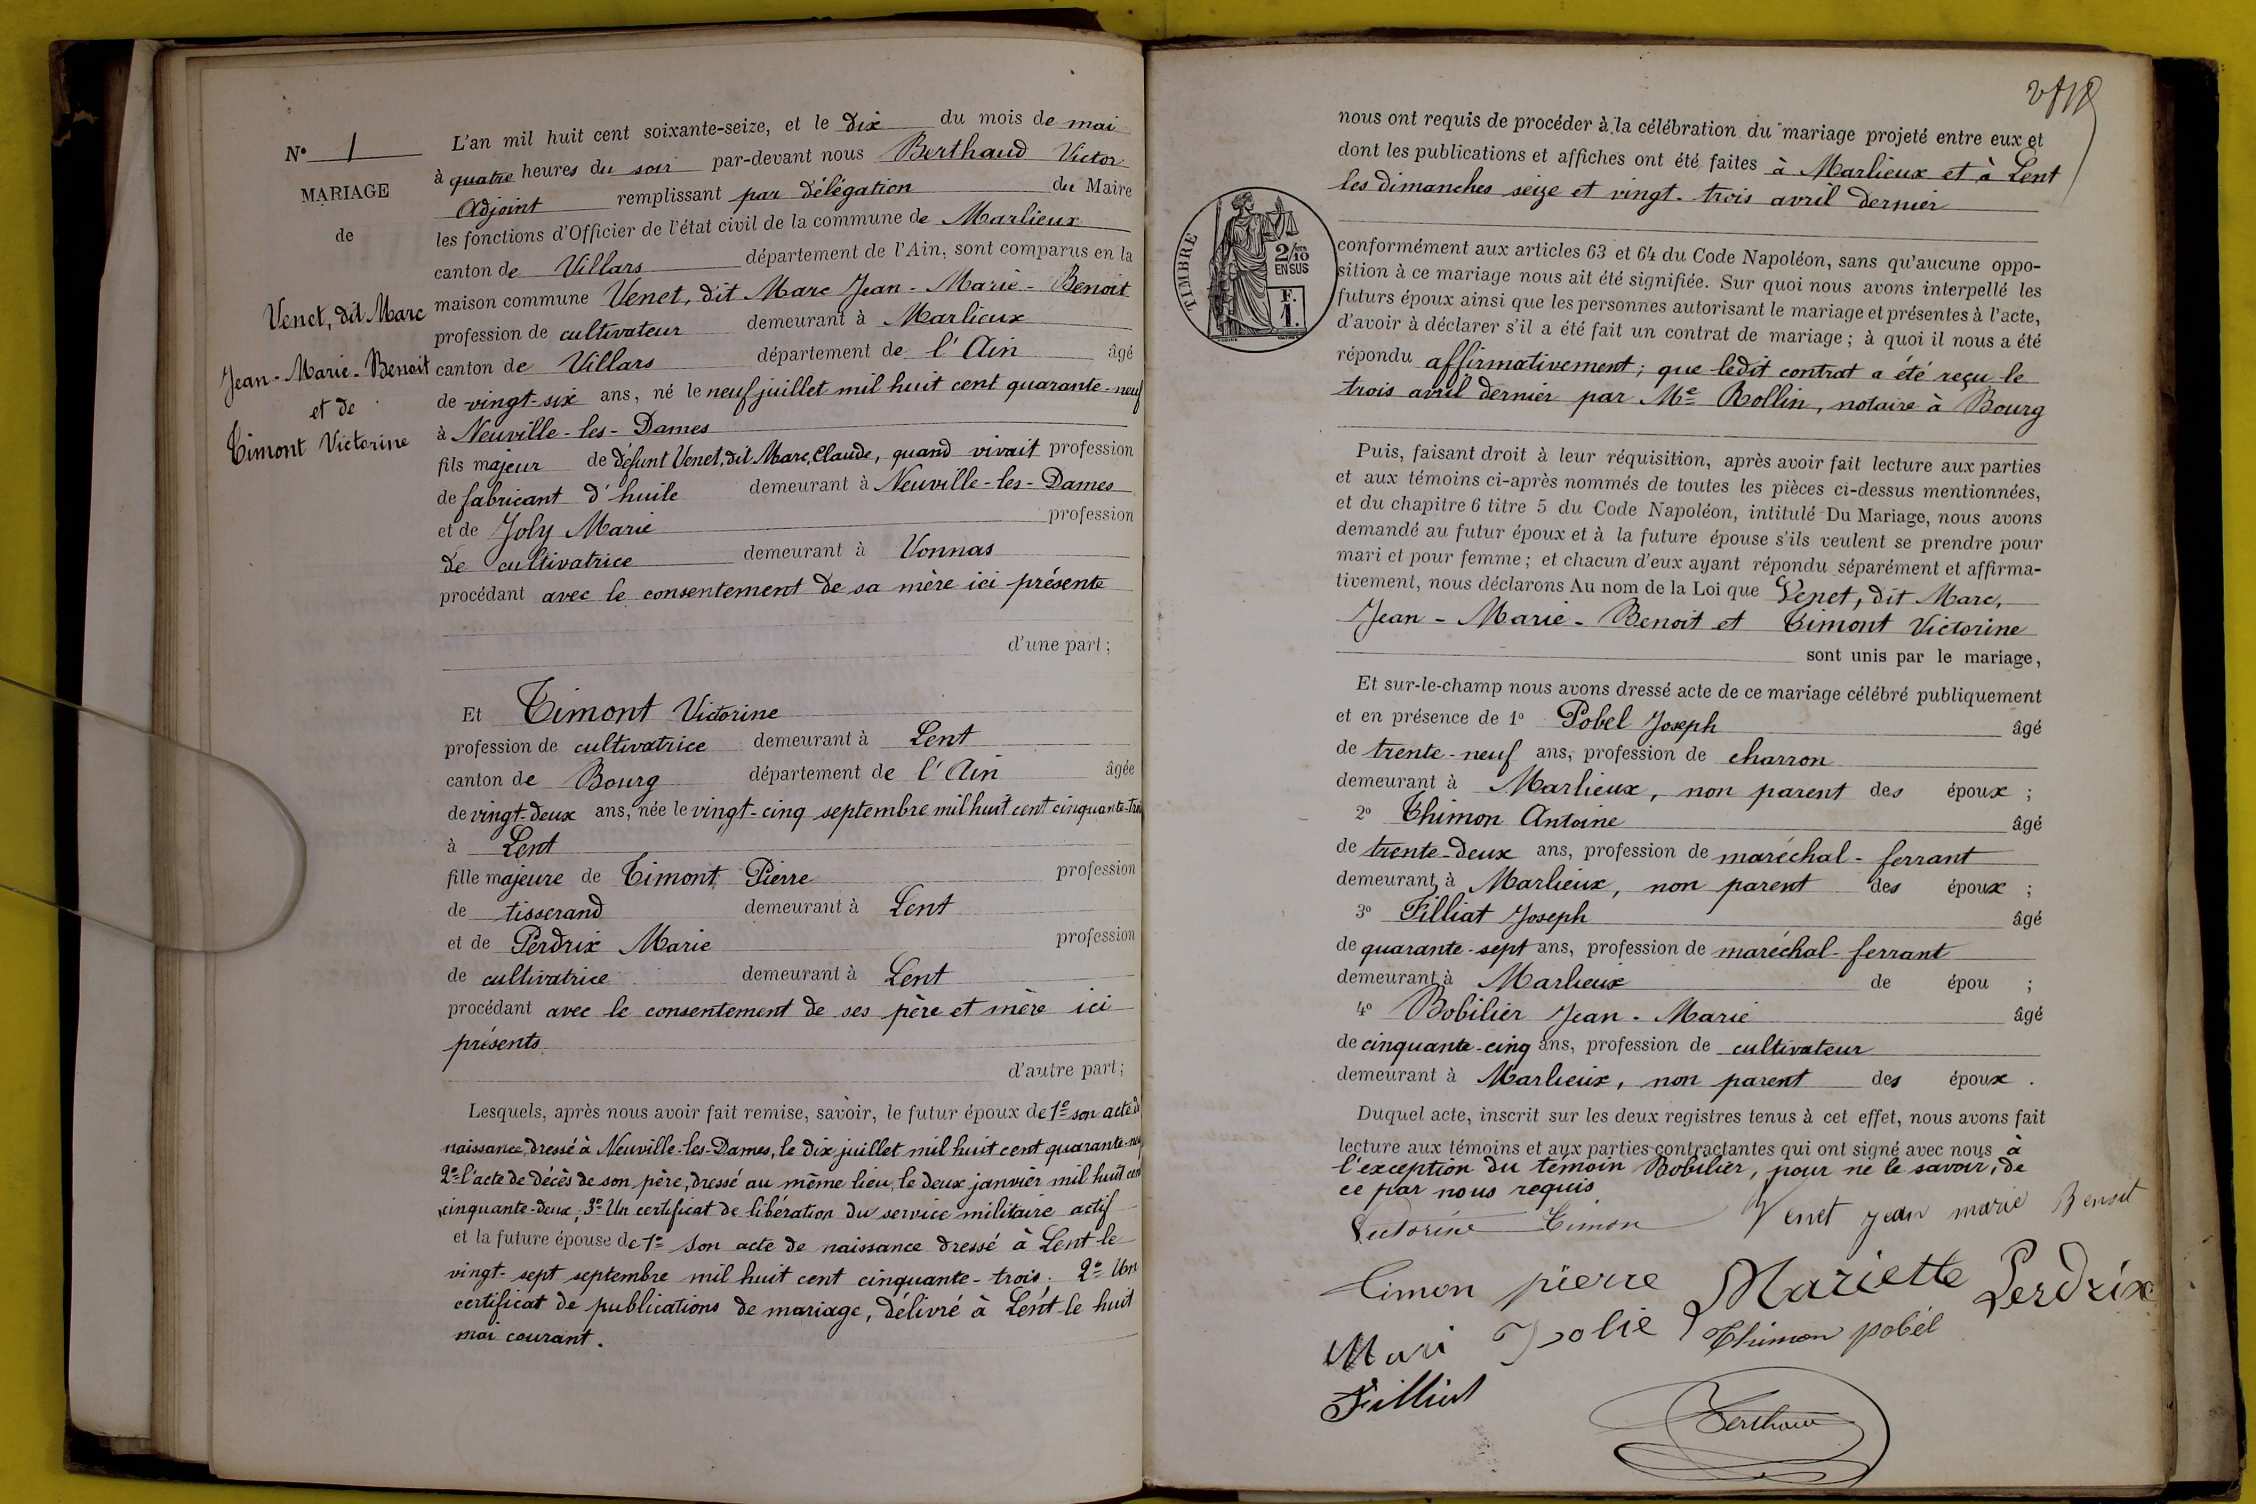 N° 1
MARIAGE
de
Venet, dit Marc
Jean-Marie-Benoit
et de
Timont Victorine
L'an mil huit cent soixante-seize, et le dix du mois de mai
à quatre heures du soir par-devant nous Berthaud Victor
Adjoint remplissant par délégation du Maire
les fonctions d'Officier de l'état civil de la commune de Marlieux
canton de Villars département de l'Ain, sont comparus en la
maison commune Venet, dit Marc Jean-Marie-Benoit
profession de cultivateur demeurant à Marlieux
canton de Villars département de l'Ain âgé
de vingt-six ans, né le neuf juillet mil huit cent quarante-neuf
à Neuville-les-Dames
fils majeur de défunt Venet, dit Marc, Claude, quand vivait profession
de fabricant d'huile demeurant à Neuville-les-Dames
et de Joly Marie profession
de cultivatrice demeurant à Vonnas
procédant avec le consentement de sa mère ici présente
d'une part;
Et Timont Victorine
profession de cultivatrice demeurant à Lent
canton de Bourg département de l'Ain âgée
de vingt-deux ans, née le vingt-cinq septembre mil huit cent cinquante-trois
à Lent
fille majeure de Timont Pierre profession
de tisserand demeurant à Lent
et de Perdrix Marie profession
de cultivatrice demeurant à Lent
procédant avec le consentement de ses père et mère ici
présents
d'autre part;
Lesquels, après nous avoir fait remise, savoir, le futur époux de 1° son acte de
naissance, dressé à Neuville-les-Dames, le dix juillet mil huit cent quarante-neuf
2° l'acte de décès de son père, dressé au même lieu, le deux janvier mil huit cent
cinquante-deux; 3° Un certificat de libération du service militaire actif
et la future épouse de 1° Son acte de naissance dressé à Lent le
vingt-sept septembre mil huit cent cinquante-trois; 2° Un
certificat de publications de mariage, délivré à Lent le huit
mai courant.
nous ont requis de procéder à la célébration du mariage projeté entre eux et
dont les publications et affiches ont été faites à Marlieux et à Lent
les dimanches seize et vingt-trois avril dernier
TIMBRE
2/10 EN SUS
F. 1.
conformément aux articles 63 et 64 du Code Napoléon, sans qu'aucune oppo-
sition à ce mariage nous ait été signifiée. Sur quoi nous avons interpellé les
futurs époux ainsi que les personnes autorisant le mariage et présentes à l'acte,
d'avoir à déclarer s'il a été fait un contrat de mariage; à quoi il nous a été
répondu affirmativement; que ledit contrat a été reçu le
trois avril dernier par Me Rollin, notaire à Bourg
Puis, faisant droit à leur réquisition, après avoir fait lecture aux parties
et aux témoins ci-après nommés de toutes les pièces ci-dessus mentionnées,
et du chapitre 6 titre 5 du Code Napoléon, intitulé Du Mariage, nous avons
demandé au futur époux et à la future épouse s'ils veulent se prendre pour
mari et pour femme; et chacun d'eux ayant répondu séparément et affirma-
tivement, nous déclarons Au nom de la Loi que Venet, dit Marc,
Jean-Marie-Benoit et Timont Victorine
sont unis par le mariage,
Et sur-le-champ nous avons dressé acte de ce mariage célébré publiquement
et en présence de 1° Pobel Joseph âgé
de trente-neuf ans, profession de charron
demeurant à Marlieux, non parent des époux ;
2° Thimon Antoine âgé
de trente-deux ans, profession de maréchal-ferrant
demeurant à Marlieux, non parent des époux ;
3° Filliat Joseph âgé
de quarante-sept ans, profession de maréchal-ferrant
demeurant à Marlieux de épou ;
4° Bobilier Jean-Marie âgé
de cinquante-cinq ans, profession de cultivateur
demeurant à Marlieux, non parent des époux .
Duquel acte, inscrit sur les deux registres tenus à cet effet, nous avons fait
lecture aux témoins et aux parties contractantes qui ont signé avec nous à
l'exception du témoin Bobilier, pour ne le savoir, de
ce par nous requis
Victorine Timon Venet jean marie Benoit
Timon pierre Mariette Perdrix
Mari Jolie Thimon pobél
Filliat
Berthaud